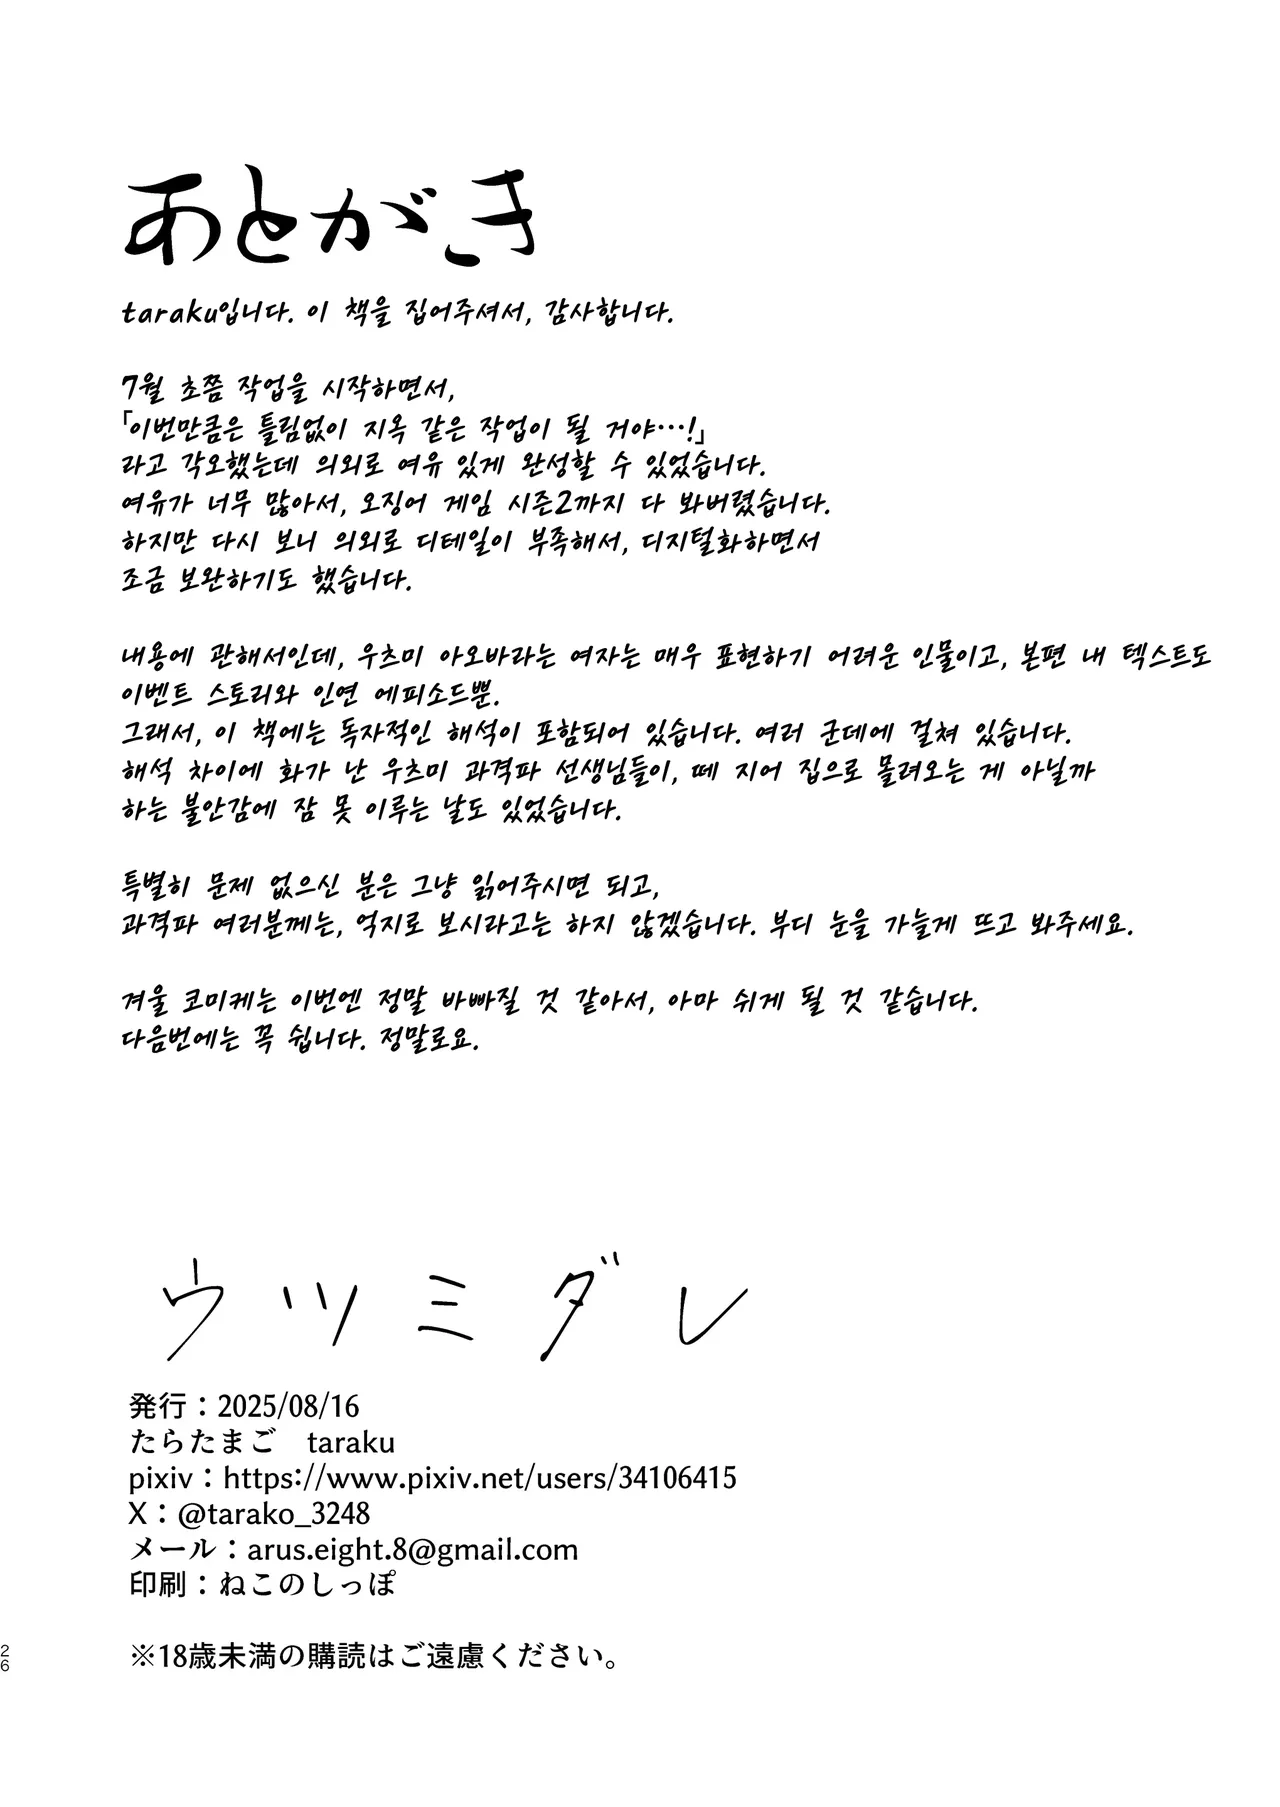 あとがき
taraku입니다. 이 책을 집어주셔서, 감사합니다.
7월 초쯤 작업을 시작하면서,
「이번만큼은 틀림없이 지옥 같은 작업이 될 거야…!」
라고 각오했는데 의외로 여유 있게 완성할 수 있었습니다.
여유가 너무 많아서, 오징어 게임 시즌2까지 다 봐버렸습니다.
하지만 다시 보니 의외로 디테일이 부족해서, 디지털화하면서
조금 보완하기도 했습니다.
내용에 관해서인데, 우츠미 아오바라는 여자는 매우 표현하기 어려운 인물이고, 본편 내 텍스트도
이벤트 스토리와 인연 에피소드뿐.
그래서, 이 책에는 독자적인 해석이 포함되어 있습니다. 여러 군데에 걸쳐 있습니다.
해석 차이에 화가 난 우츠미 과격파 선생님들이, 떼 지어 집으로 몰려오는 게 아닐까
하는 불안감에 잠 못 이루는 날도 있었습니다.
특별히 문제 없으신 분은 그냥 읽어주시면 되고,
과격파 여러분께는, 억지로 보시라고는 하지 않겠습니다. 부디 눈을 가늘게 뜨고 봐주세요.
겨울 코미케는 이번엔 정말 바빠질 것 같아서, 아마 쉬게 될 것 같습니다.
다음번에는 꼭 쉽니다. 정말로요.
ウツミダレ
発行：2025/08/16
たらたまご　taraku
pixiv：https://www.pixiv.net/users/34106415
X：@tarako_3248
メール：arus.eight.8@gmail.com
印刷：ねこのしっぽ
※18歳未満の購読はご遠慮ください。
26